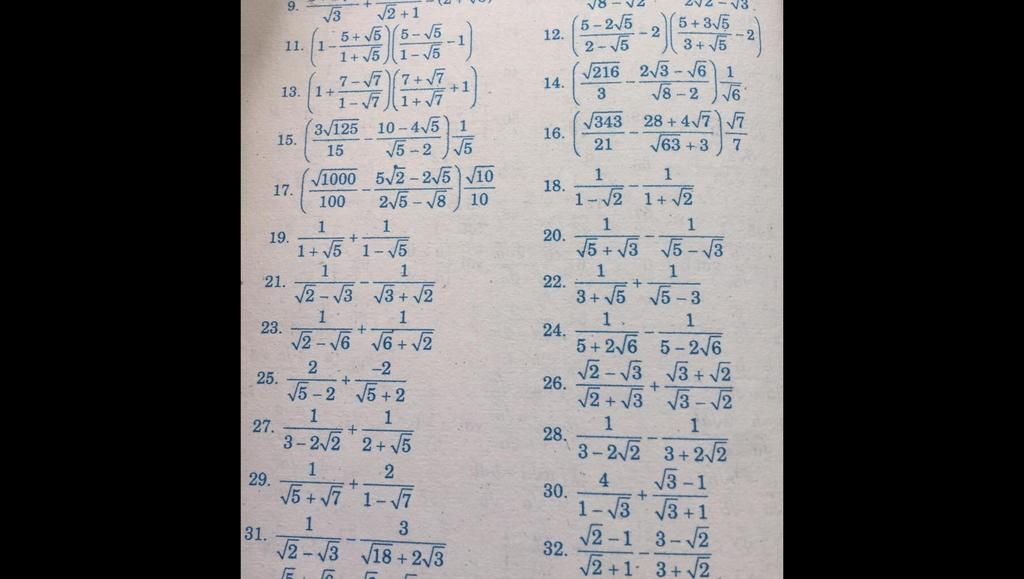 9. √3 + √2 + 1
√8 − √2 2√2 − √3
11. (1 − (5 + √5)/(1 + √5))((5 − √5)/(1 − √5) − 1)
12. ((5 − 2√5)/(2 − √5) − 2)((5 + 3√5)/(3 + √5) − 2)
13. (1 + (7 − √7)/(1 − √7))((7 + √7)/(1 + √7) + 1)
14. (√216/3 − (2√3 − √6)/(√8 − 2)) 1/√6
15. (3√125/15 − (10 − 4√5)/(√5 − 2)) 1/√5
16. (√343/21 − (28 + 4√7)/(√63 + 3)) √7/7
17. (√1000/100 − (5√2 − 2√5)/(2√5 − √8)) √10/10
18. 1/(1 − √2) − 1/(1 + √2)
19. 1/(1 + √5) + 1/(1 − √5)
20. 1/(√5 + √3) − 1/(√5 − √3)
21. 1/(√2 − √3) − 1/(√3 + √2)
22. 1/(3 + √5) + 1/(√5 − 3)
23. 1/(√2 − √6) + 1/(√6 + √2)
24. 1/(5 + 2√6) − 1/(5 − 2√6)
25. 2/(√5 − 2) + −2/(√5 + 2)
26. (√2 − √3)/(√2 + √3) + (√3 + √2)/(√3 − √2)
27. 1/(3 − 2√2) + 1/(2 + √5)
28. 1/(3 − 2√2) − 1/(3 + 2√2)
29. 1/(√5 + √7) + 2/(1 − √7)
30. 4/(1 − √3) + (√3 − 1)/(√3 + 1)
31. 1/(√2 − √3) − 3/(√18 + 2√3)
32. (√2 − 1)/(√2 + 1) − (3 − √2)/(3 + √2)